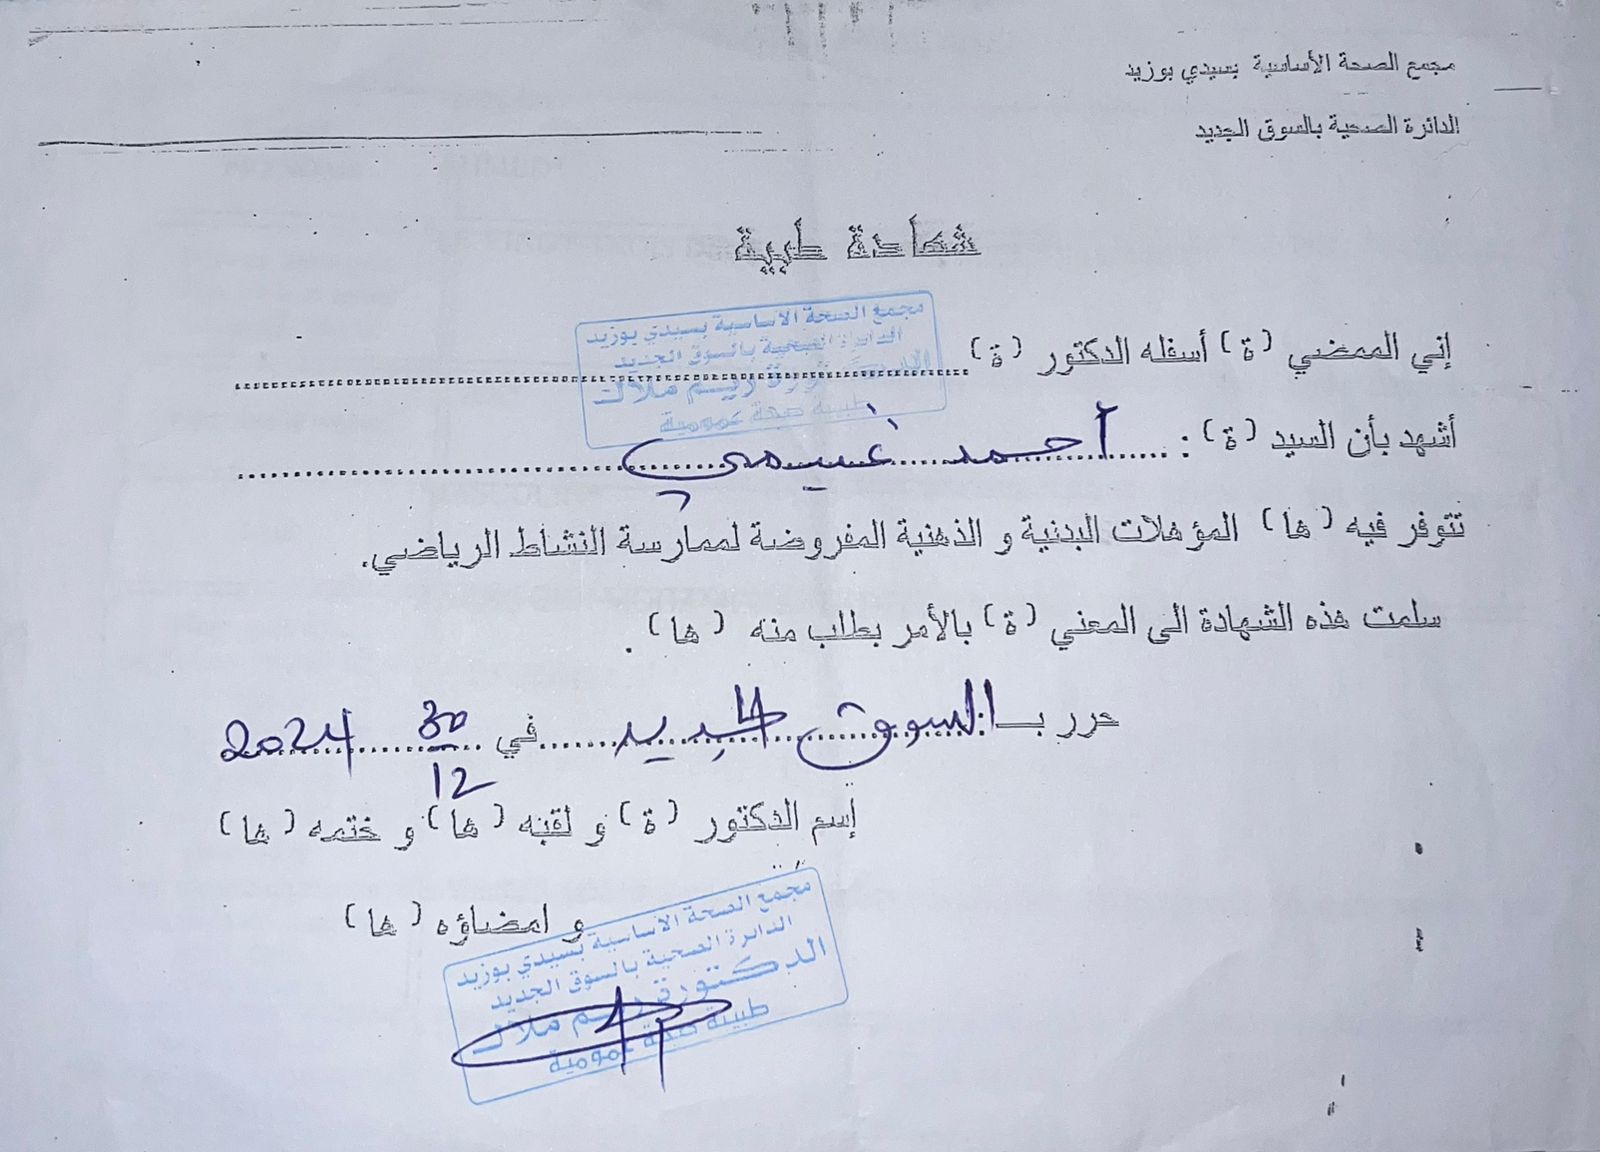 مجمع الصحة الأساسية بسيدي بوزيد
الدائرة الصحية بالسوق الجديد
شهادة طبية
إني الممضي (ة) أسفله الدكتور (ة)
مجمع الصحة الاساسية بسيدي بوزيد
الدائرة الصحية بالسوق الجديد
الدكتورة ريم ملاك
طبيبة صحة عمومية
أشهد بأن السيد (ة) : أحمد غيمي
تتوفر فيه (ها) المؤهلات البدنية و الذهنية المفروضة لممارسة النشاط الرياضي.
سلمت هذه الشهادة الى المعني (ة) بالأمر بطلب منه (ها).
حرر بـ السوق الجديد في 30/12 2024
إسم الدكتور (ة) و لقبه (ها) و ختمه (ها)
و امضاؤه (ها)
مجمع الصحة الاساسية بسيدي بوزيد
الدائرة الصحية بالسوق الجديد
الدكتورة ريم ملاك
طبيبة صحة عمومية